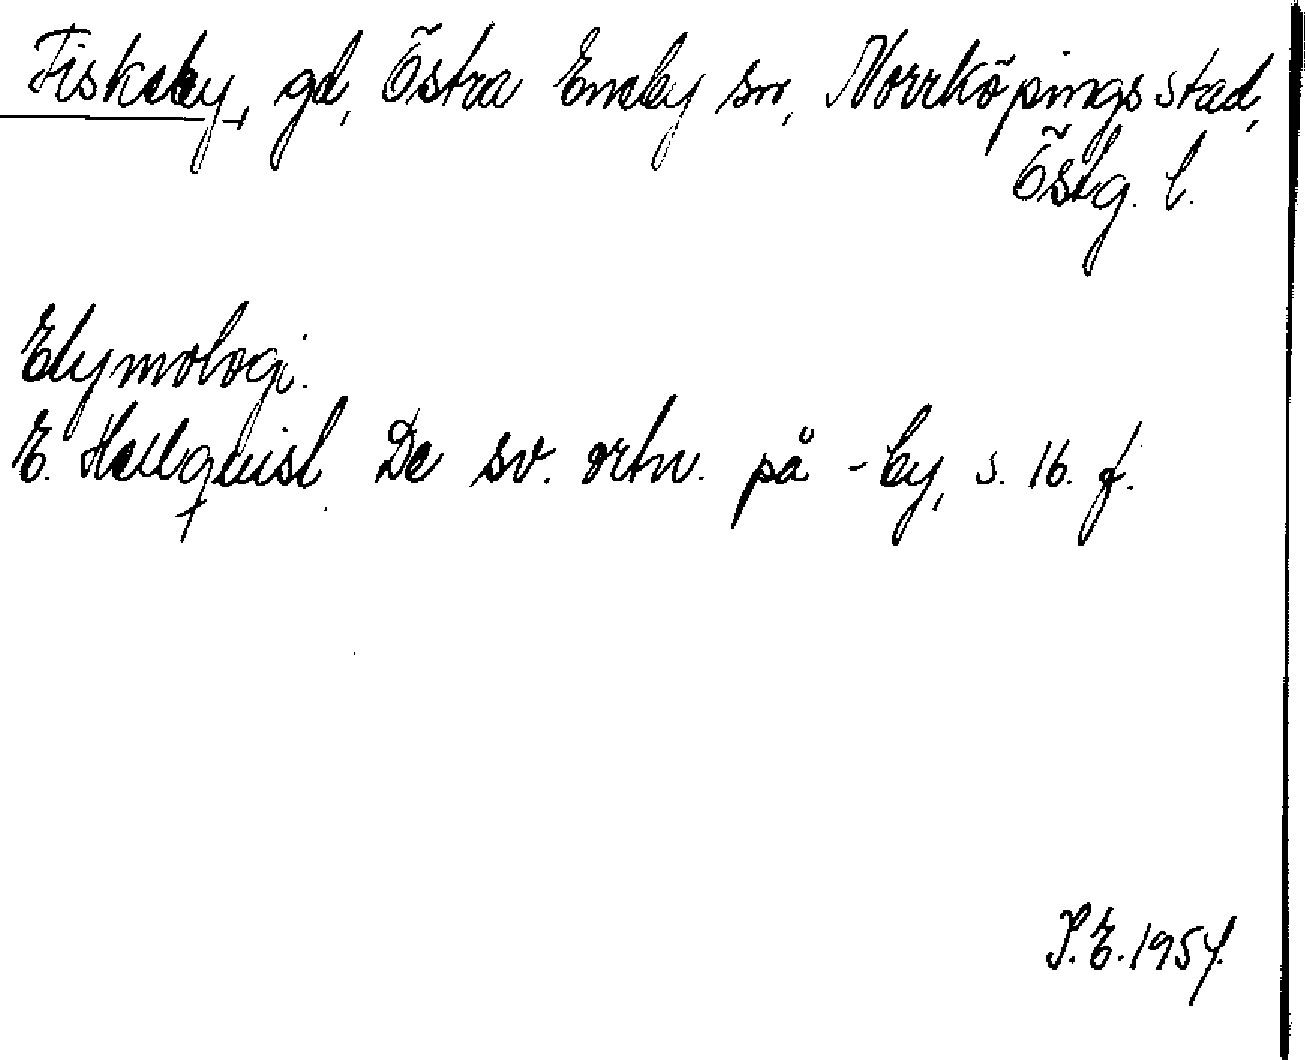 Fiskeby, gd, Östra Eneby sn, Norrköpings stad,
Östg. l.
Etymologi.
E. Hellquist. De sv. ortn. på -by, s. 16. f.
S. E. 1954.